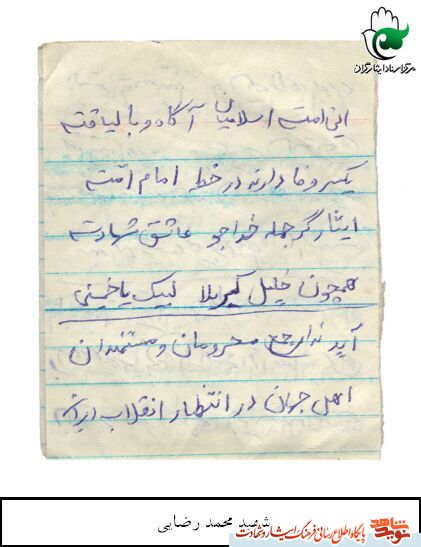 مرکز اسناد ایثارگران
این امت اسلامیان آگاه و با لیاقته
یکسر وفا دارند در خط امام امّته
ایثارگر جمله خداجو عاشق شهادته
همچون خلیل کربلا لبیک یا خمینی
آید ندا ز جمع محرومان و مستمندان
اهل جهان در انتظار انقلاب ایران
شهید محمد رضایی
نوید شاهد
پایگاه اطلاع رسانی فرهنگ ایثار و شهادت